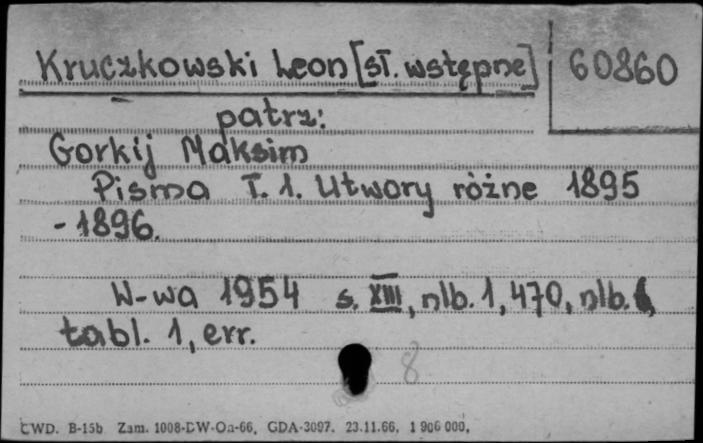 Kruczkowski Leon [sł. wstępne] 60860
patrz:
Gorkij Maksim
Pisma T. 1. Utwory różne 1895
-1896.
W-wa 1954 s. XIII, nlb. 1, 470, nlb. 6,
tabl. 1, err.
8
CWD. B-15b Zam. 1008-DW-Oa-66, GDA-3097. 23.11.66, 1 906 000,